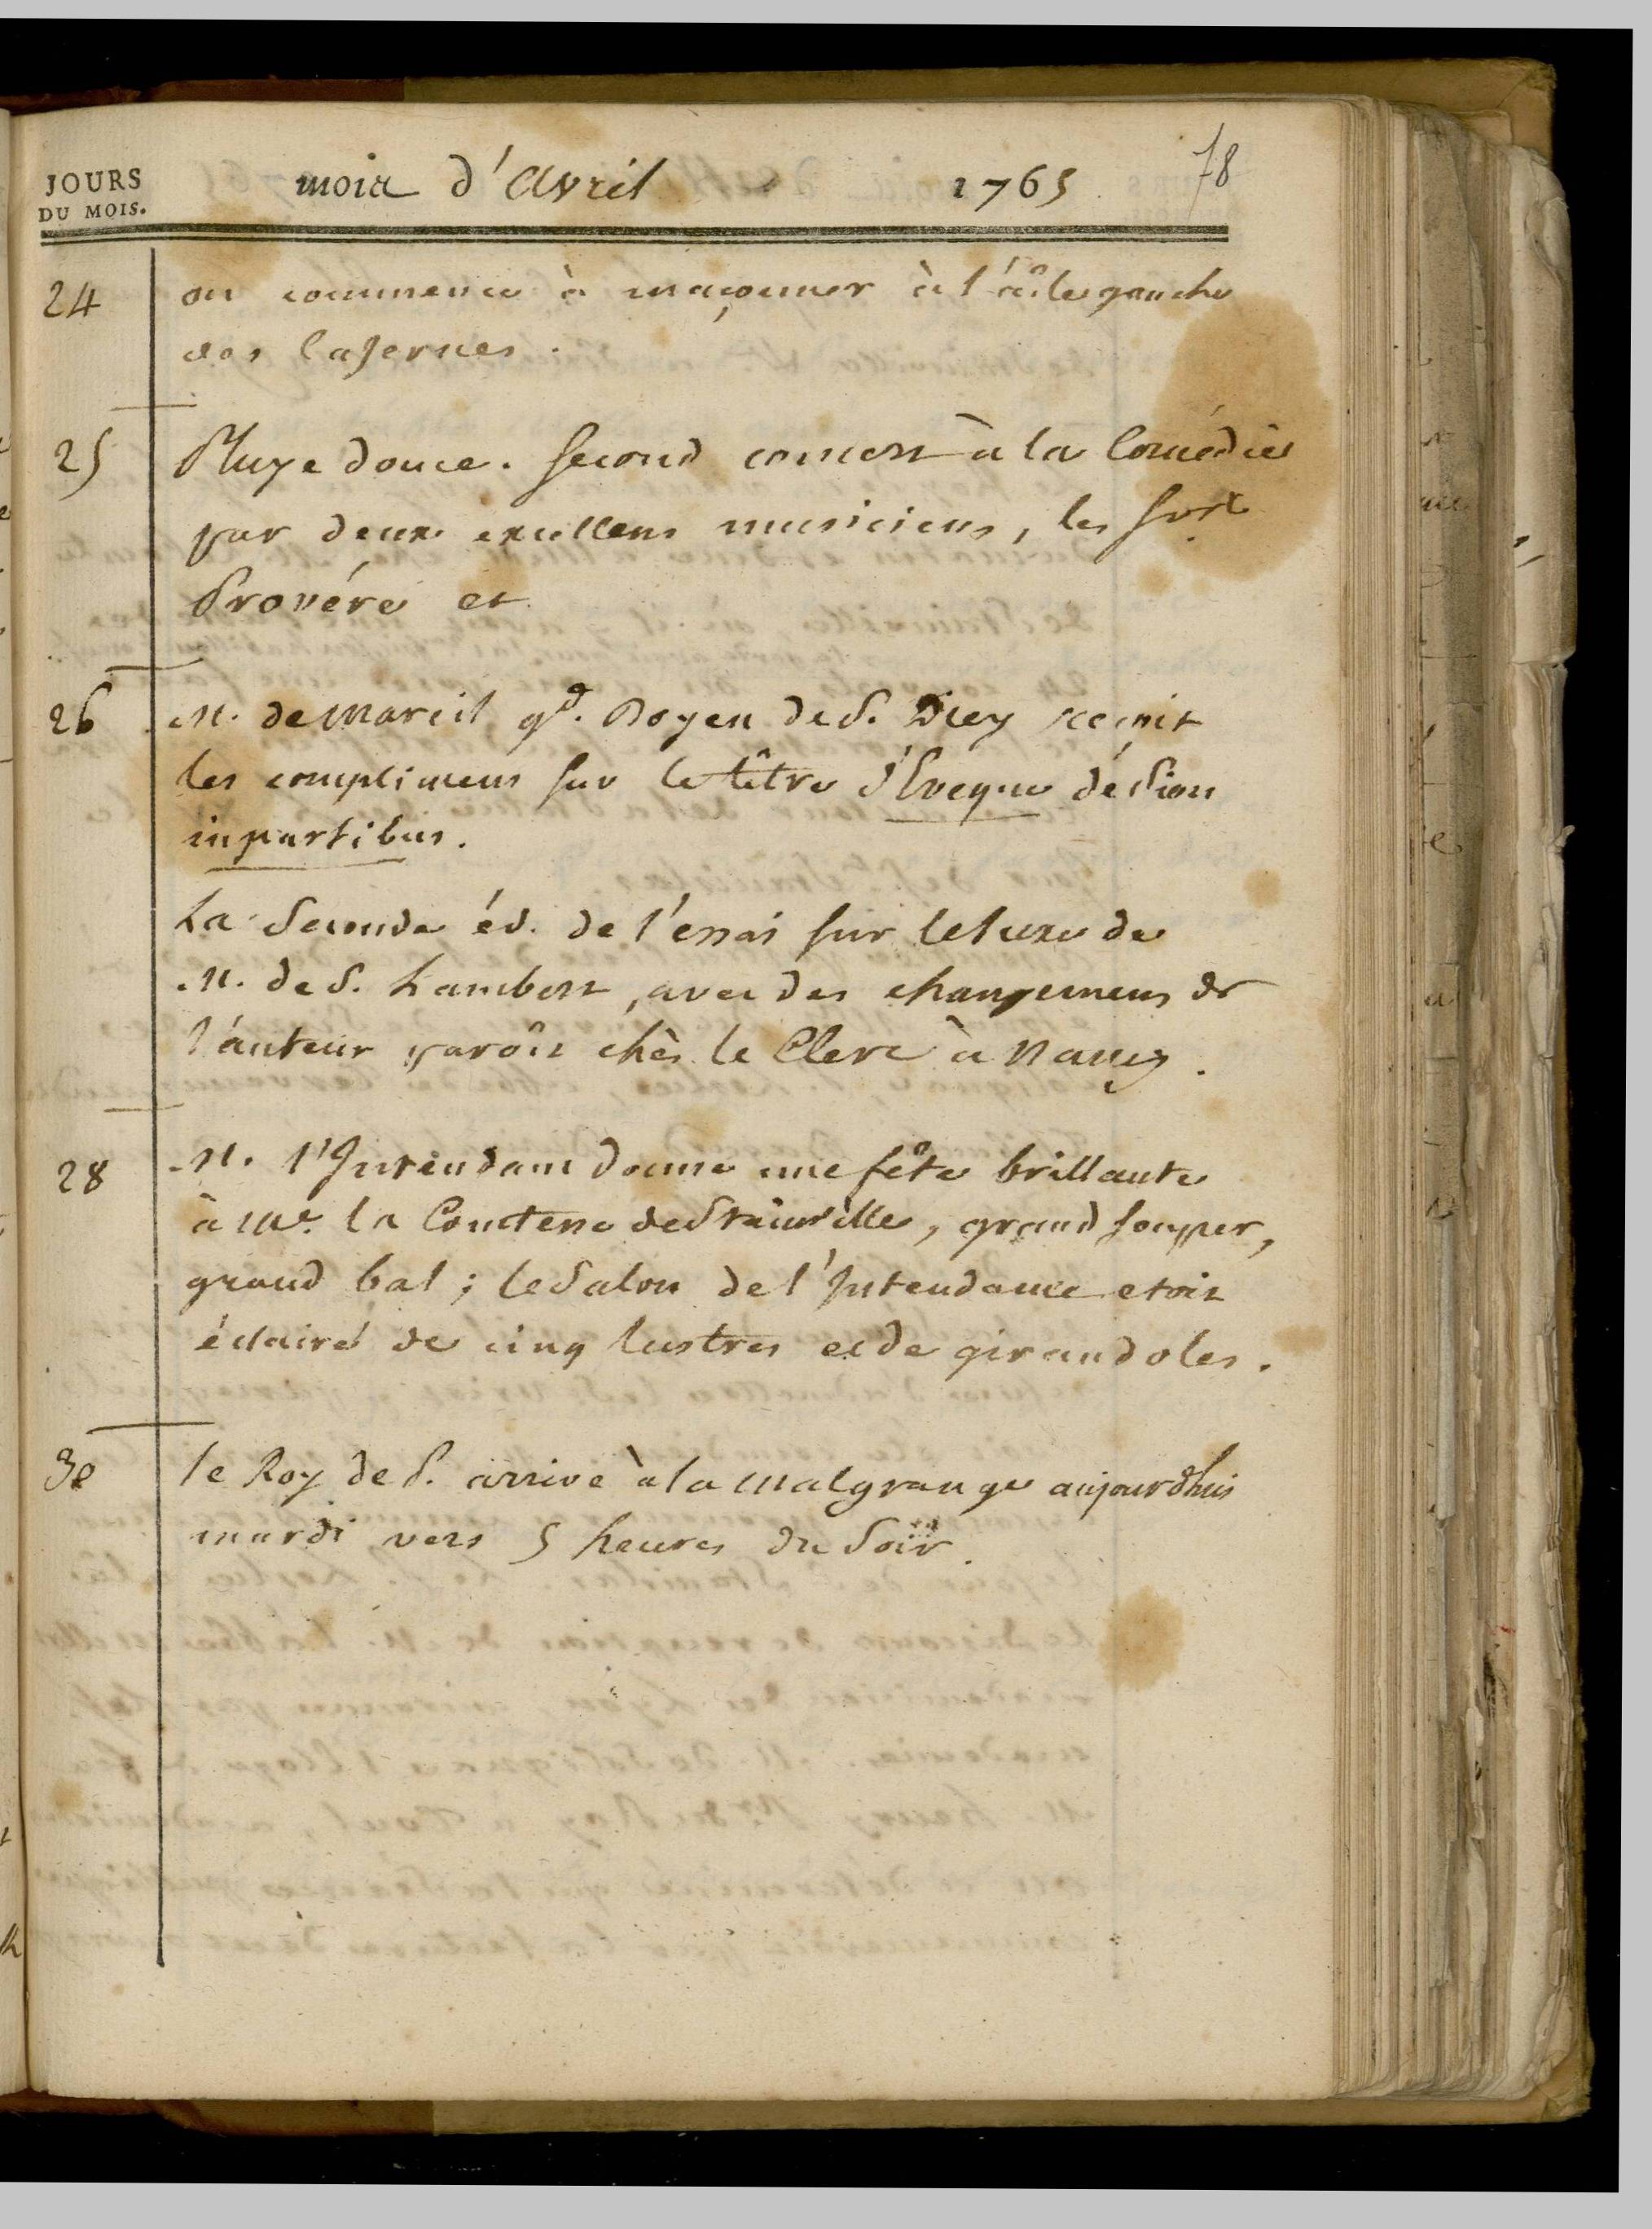 JOURS
DU MOIS.
mois d'Avril 1765 78
24 on commence à maçonner à l'aîle gauche
des Casernes.
25 Pluye douce. second concert à la Comédie
par deux excellens musiciens, les Srs
Provére et
26 M. de Mareil gd. Doyen de S. Diey recoit
les complimens sur le tître d'Evêque de Sion
in partibus.
La seconde éd. de l'essai sur le luxe de
M. de S. Lambert, avec des changemens de
l'auteur paroît chès le Clerc à Nancy.
28 M. l'Intendant donne une fête brillante
à Me. la Comtesse de Stainville, grand souper,
grand bal; le Salon de l'Intendance etoit
éclairé de cinq lustres et de girandoles.
30 le Roy de P. arrive à la Malgrange aujourdhui
mardi vers 5 heures du soir.